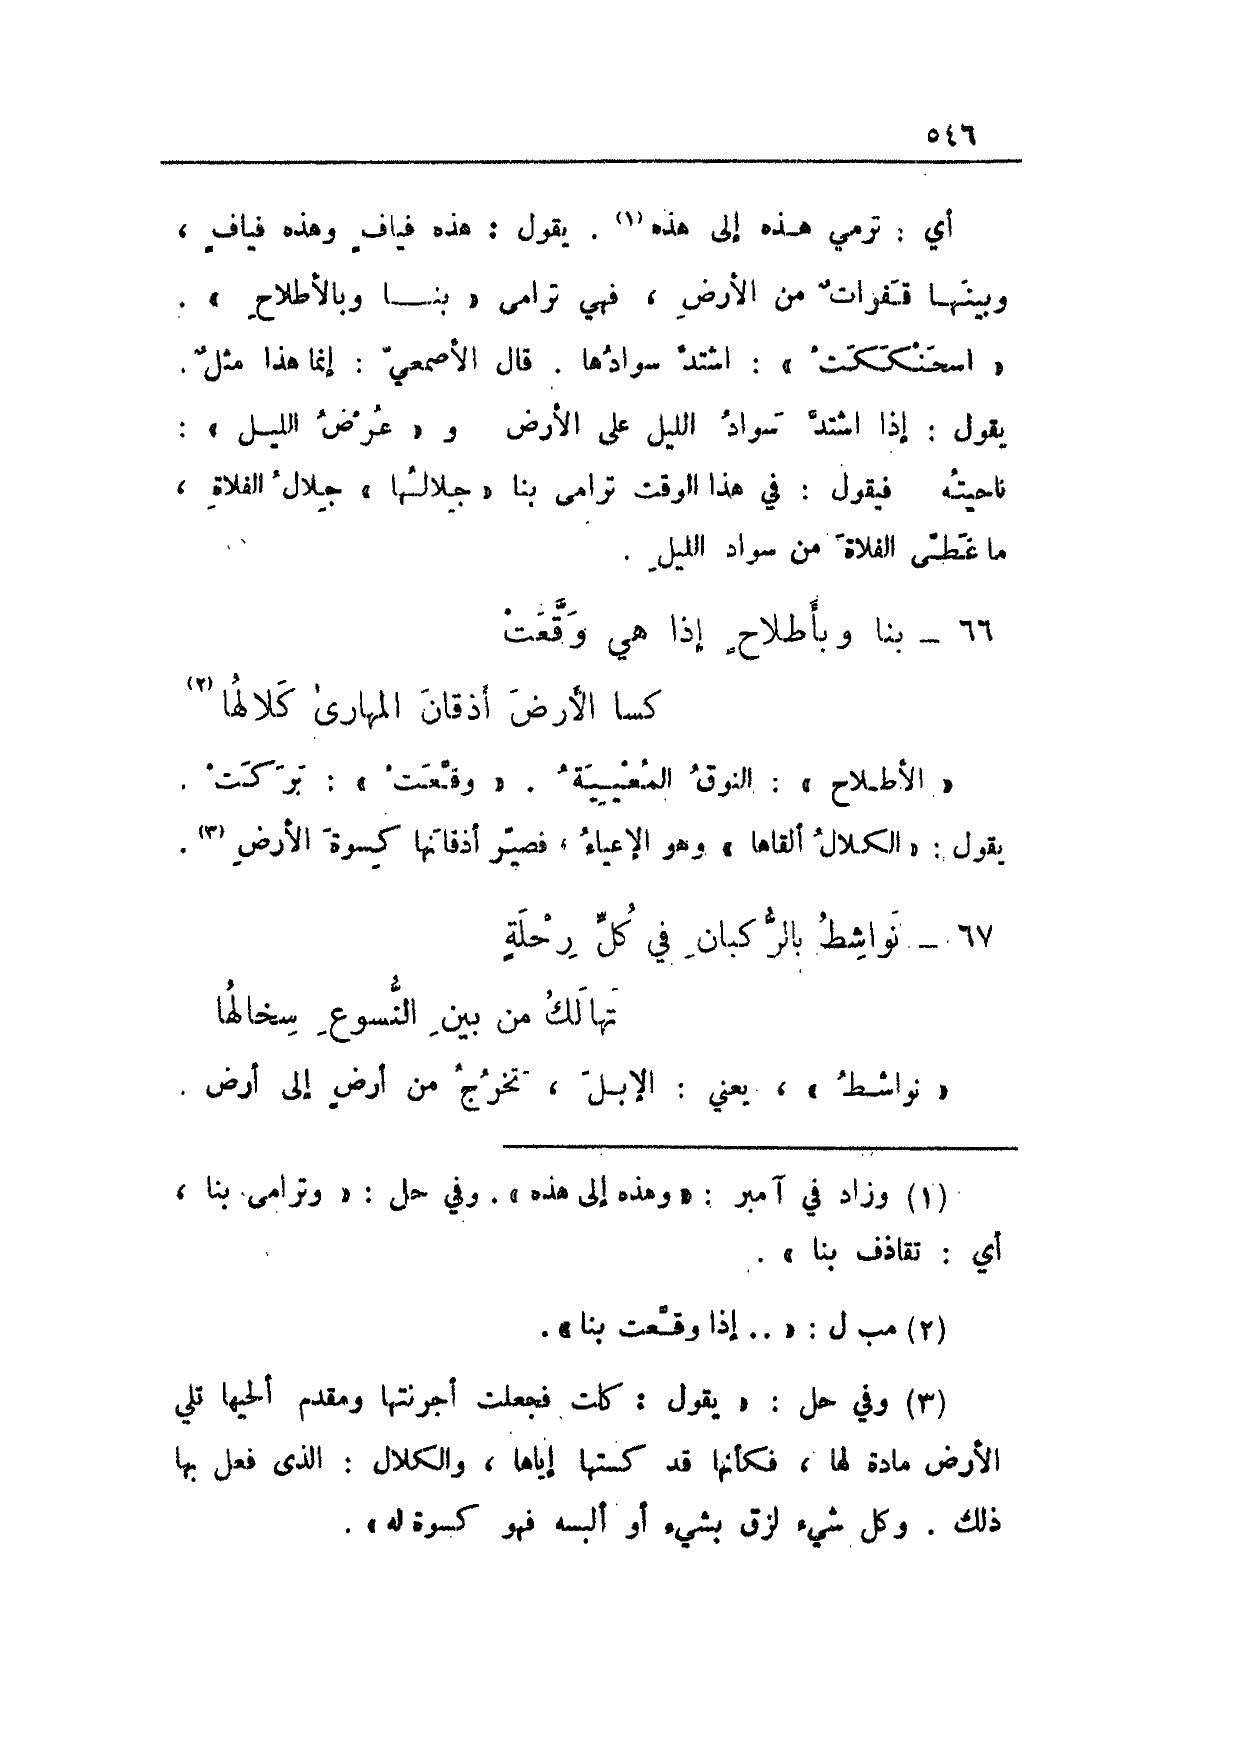 ٥٤٦
أي : ترمي هـذه إلى هذه (١) . يقول : هذه فيافٍ وهذه فيافٍ ،
وبينَها قَفراتٌ من الأرضِ ، فهي ترامى « بنـا وبالأطلاحِ » .
« اسحَنْكَكَتْ » : اشتدَّ سوادُها . قال الأصمعيّ : إنما هذا مثلٌ .
يقول : إذا اشتدَّ سَوادُ الليل على الأرض و « عُرْضُ الليـل » :
ناحيتُه فيقول : في هذا الوقت ترامى بنا « جِلالُها » جِلالُ الفلاةِ ،
ما غَطَّى الفلاةَ من سواد الليلِ .
٦٦ ـ بنا وبأَطلاحٍ إذا هي وَقَّعَتْ
كسا الأرضَ أَذقانَ المهارىٰ كَلالُها (٢)
« الأطـلاح » : النوقُ المُعْيِيَةُ . « وقَّعَتْ » : بَرَكَتْ .
يقول : « الكـلالُ ألقاها » وهو الإعياءُ ، فصيّر أذقانَها كِسوةَ الأرضِ (٣) .
٦٧ ـ نَواشِطُ بالرُّكبانِ في كُلِّ رِحْلَةٍ
تَهالَكُ من بينِ النُّسوعِ سِخالُها
« نواشـطُ » ، يعني : الإبـلَ ، تَخرُجُ من أرضٍ إلى أرض .
(١) وزاد في آمبر : « وهذه إلى هذه » . وفي حل : « وترامى بنا ،
أي : تقاذف بنا » .
(٢) مب ل : « .. إذا وقَّعت بنا » .
(٣) وفي حل : « يقول : كلت فجعلت أجرنتها ومقدم ألحيها تلي
الأرض مادة لها ، فكأنها قد كستها إياها ، والكلال : الذى فعل بها
ذلك . وكل شيء لزق بشيء أو ألبسه فهو كسوة له » .